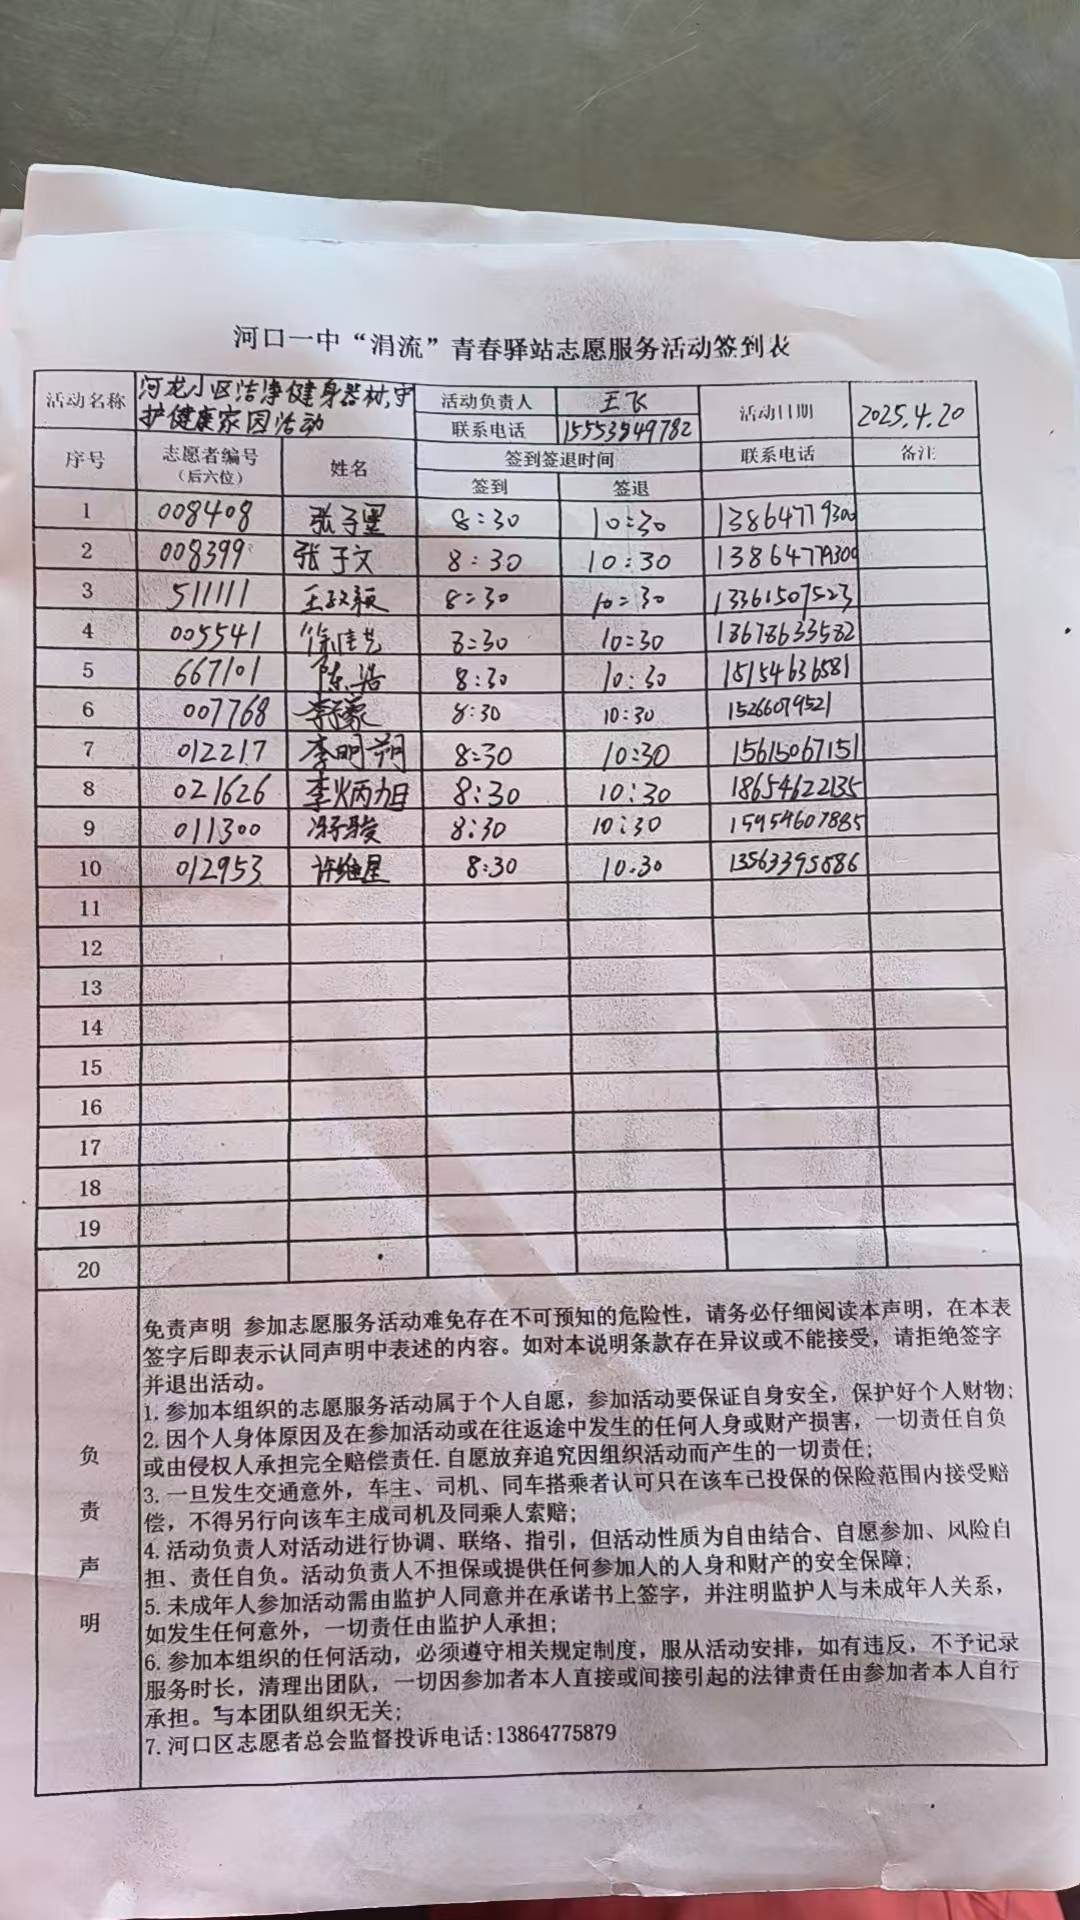 河口一中“涓流”青春驿站志愿服务活动签到表
活动名称 河龙小区洁净健身器材,守护健康家园活动 活动负责人 王飞 活动日期 2025.4.20
联系电话 15553849782
序号 志愿者编号（后六位） 姓名 签到签退时间 联系电话 备注
签到 签退
1 008408 张子墨 8:30 10:30 13864779300
2 008399 张子文 8:30 10:30 13864779300
3 511111 8:30 10:30 13361507523
4 005541 徐佳艺 8:30 10:30 18678633582
5 667101 陈浩 8:30 10:30 15154636581
6 007768 8:30 10:30 15266079521
7 012217 李明朔 8:30 10:30 15615067151
8 021626 李炳旭 8:30 10:30 18654622135
9 011300 8:30 10:30 15954607885
10 012953 许维星 8:30 10:30 13563395886
11
12
13
14
15
16
17
18
19
20
负责声明
免责声明 参加志愿服务活动难免存在不可预知的危险性，请务必仔细阅读本声明，在本表
签字后即表示认同声明中表述的内容。如对本说明条款存在异议或不能接受，请拒绝签字
并退出活动。
1. 参加本组织的志愿服务活动属于个人自愿，参加活动要保证自身安全，保护好个人财物；
2. 因个人身体原因及在参加活动或在往返途中发生的任何人身或财产损害，一切责任自负
或由侵权人承担完全赔偿责任.自愿放弃追究因组织活动而产生的一切责任；
3. 一旦发生交通意外，车主、司机、同车搭乘者认可只在该车已投保的保险范围内接受赔
偿，不得另行向该车主成司机及同乘人索赔；
4. 活动负责人对活动进行协调、联络、指引，但活动性质为自由结合、自愿参加、风险自
担、责任自负。活动负责人不担保或提供任何参加人的人身和财产的安全保障；
5. 未成年人参加活动需由监护人同意并在承诺书上签字，并注明监护人与未成年人关系，
如发生任何意外，一切责任由监护人承担；
6. 参加本组织的任何活动，必须遵守相关规定制度，服从活动安排，如有违反，不予记录
服务时长，清理出团队，一切因参加者本人直接或间接引起的法律责任由参加者本人自行
承担。与本团队组织无关；
7. 河口区志愿者总会监督投诉电话:13864775879